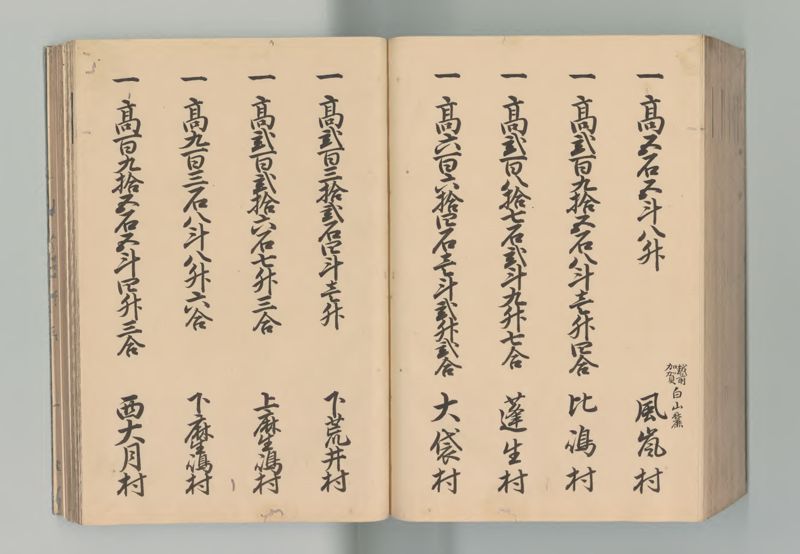 一 高五石五斗八升
越前
加賀
白山麓
風嵐村
一 高弐百九拾五石八斗壱升四合 比嶋村
一 高弐百八拾七石弐斗九升七合 蓬生村
一 高六百六拾四石壱斗弐升弐合 大袋村
一 高弐百三拾弐石四斗壱升 下荒井村
一 高弐百弐拾六石七升三合 上麻生嶋村
一 高九百三石八斗八升六合 下麻生嶋村
一 高百九拾五石五斗四升三合 西大月村